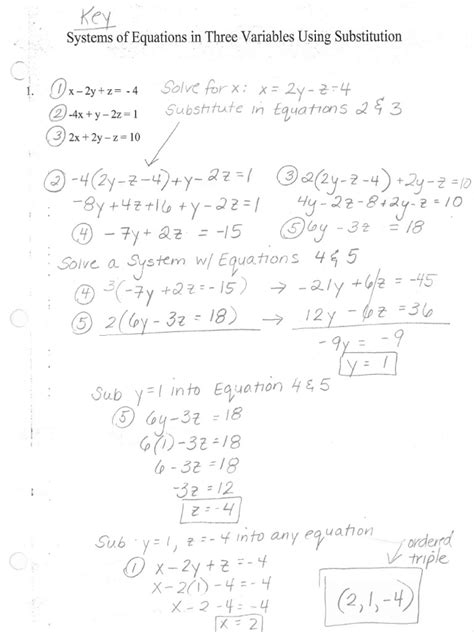 Key
Systems of Equations in Three Variables Using Substitution
1. ① x – 2y + z = - 4 Solve for x: x = 2y - z - 4
② -4x + y – 2z = 1 Substitute in Equations 2 & 3
③ 2x + 2y – z = 10
② -4(2y-z-4)+y-2z=1 ③ 2(2y-z-4)+2y-z=10
-8y+4z+16+y-2z=1 4y-2z-8+2y-z=10
④ -7y+2z = -15 ⑤ 6y-3z = 18
Solve a System w/ Equations 4 & 5
④ 3(-7y+2z=-15) → -21y+6z = -45
⑤ 2(6y-3z=18) → 12y - 6z = 36
-9y = -9
y = 1
Sub y=1 into Equation 4 & 5
⑤ 6y-3z=18
6(1)-3z=18
6-3z=18
-3z=12
z=-4
Sub y=1, z=-4 into any equation
ordered
triple
① x-2y+z=-4
x-2(1)-4=-4
x-2-4=-4
x=2
(2,1,-4)